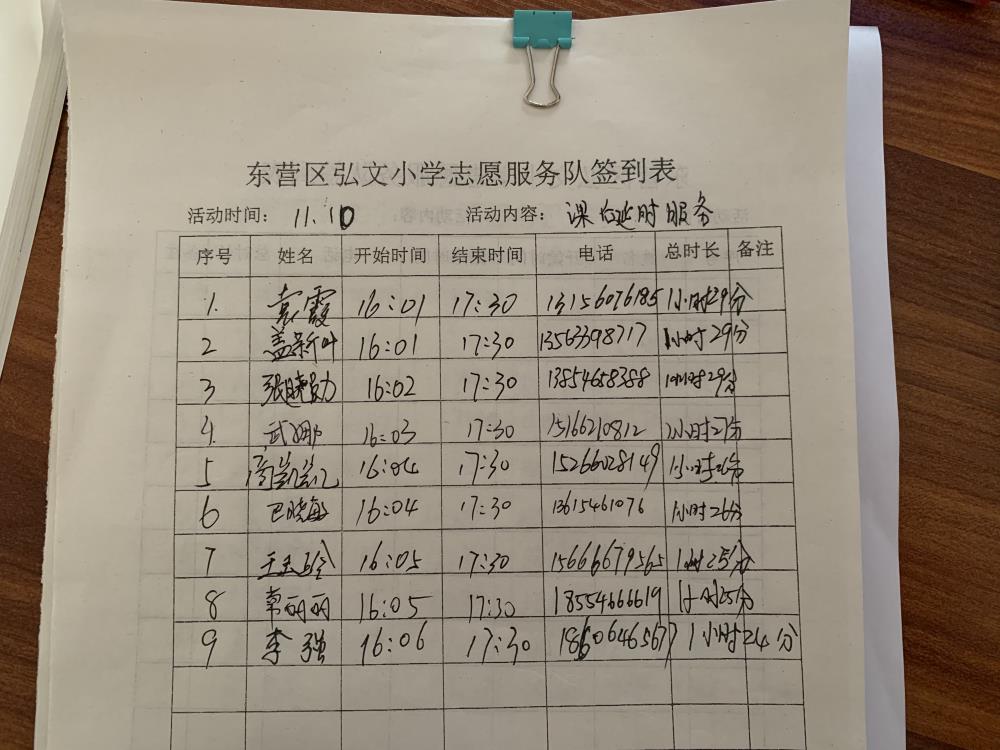 东营区弘文小学志愿服务队签到表
活动时间： 11.10 活动内容： 课后延时服务
序号 姓名 开始时间 结束时间 电话 总时长 备注
1. 袁霞 16:01 17:30 13156076185 1小时29分
2 盖新叶 16:01 17:30 13563398717 1小时29分
3 张晓勤 16:02 17:30 13854658388 1小时29分
4. 武娜 16:03 17:30 15166210812 1小时27分
5 16:04 17:30 15266028149 1小时26分
6 巴晓敏 16:04 17:30 13615461076 1小时26分
7 王玉玲 16:05 17:30 15666679565 1小时25分
8 常丽丽 16:05 17:30 18554666619 1小时25分
9 李强 16:06 17:30 18606465677 1小时24分